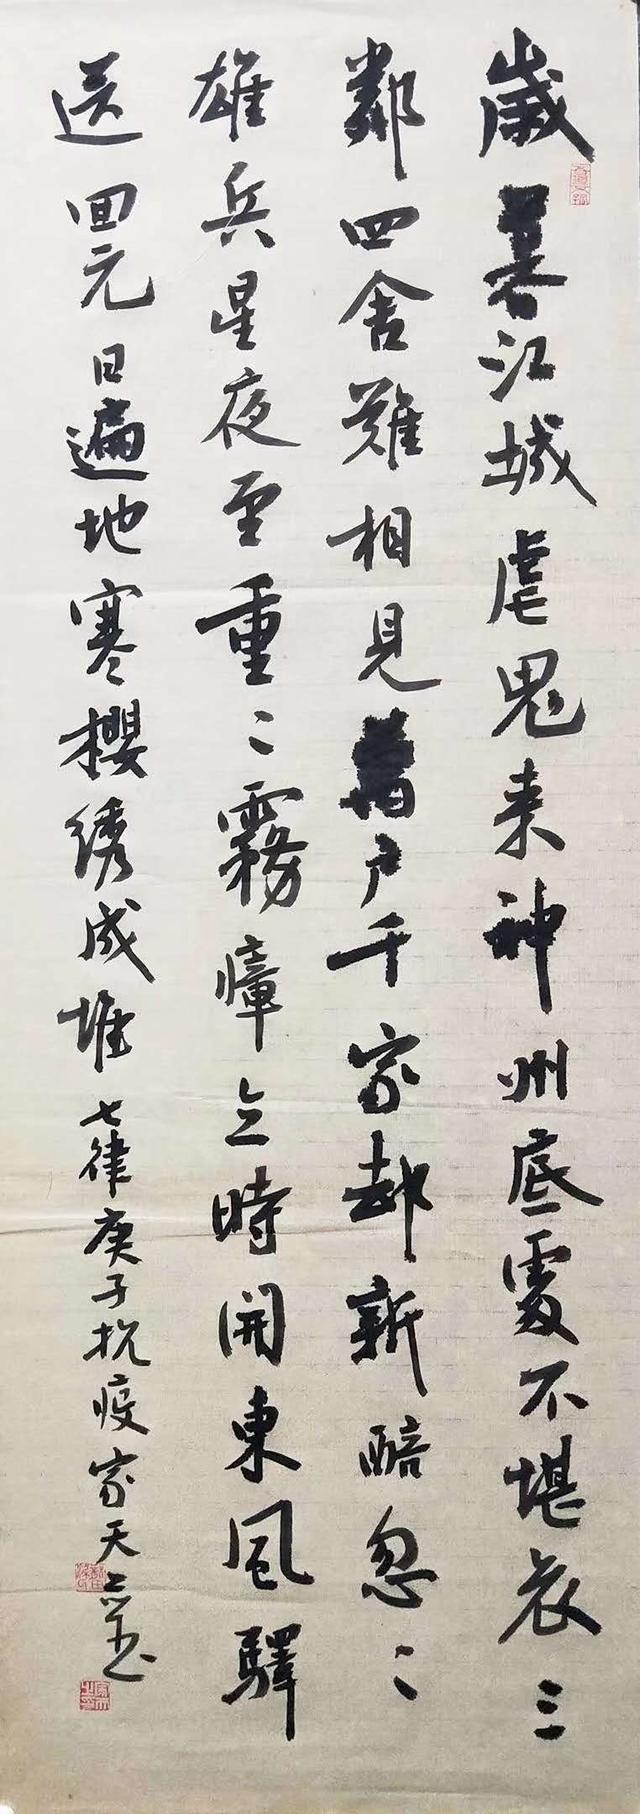 歲暮江城虐鬼来神州底處不堪哀三
鄰四舍難相見萬户千家却新醅忽〻
雄兵星夜至重〻霧瘴立時開東風驛
送回元日遍地寒櫻綉成堆七律庚子抗疫家天